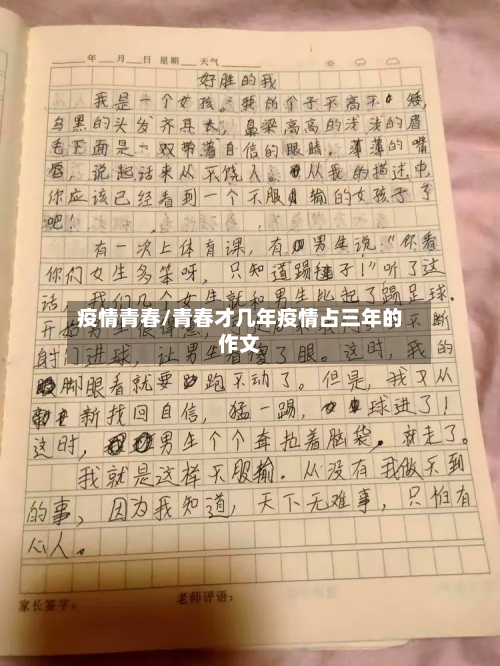 年 月 日 星期 天气
好胜的我
我是一个女孩。我的个子不高不矮,
乌黑的头发齐耳长,鼻梁高高的浅浅的眉
毛下面是一双带着自信的眼睛。薄薄的嘴
唇,说起话来从不饶人。从我的描述中
你应该已经看到一个不服输的女孩子了
吧!
有一次上体育课,有男生说:“你看
你们女生多笨呀,只知道踢毽子!”听了这
话,我们几个女生就和男生比起了踢足球。
开始
疫情青春/青春才几年疫情占三年的
作文
不断
射门进球,让男生看 了眼。这时,我的
脚眼看就要跑不动了。但是,我又从
新找回自信,猛一踢,球进了!
这时,男生个个耷拉着脑袋,就走了。
我就是这样不服输。从没有我做不到
的事,因为我知道,天下无难事,只怕有
心人。
家长签字: 老师评语: